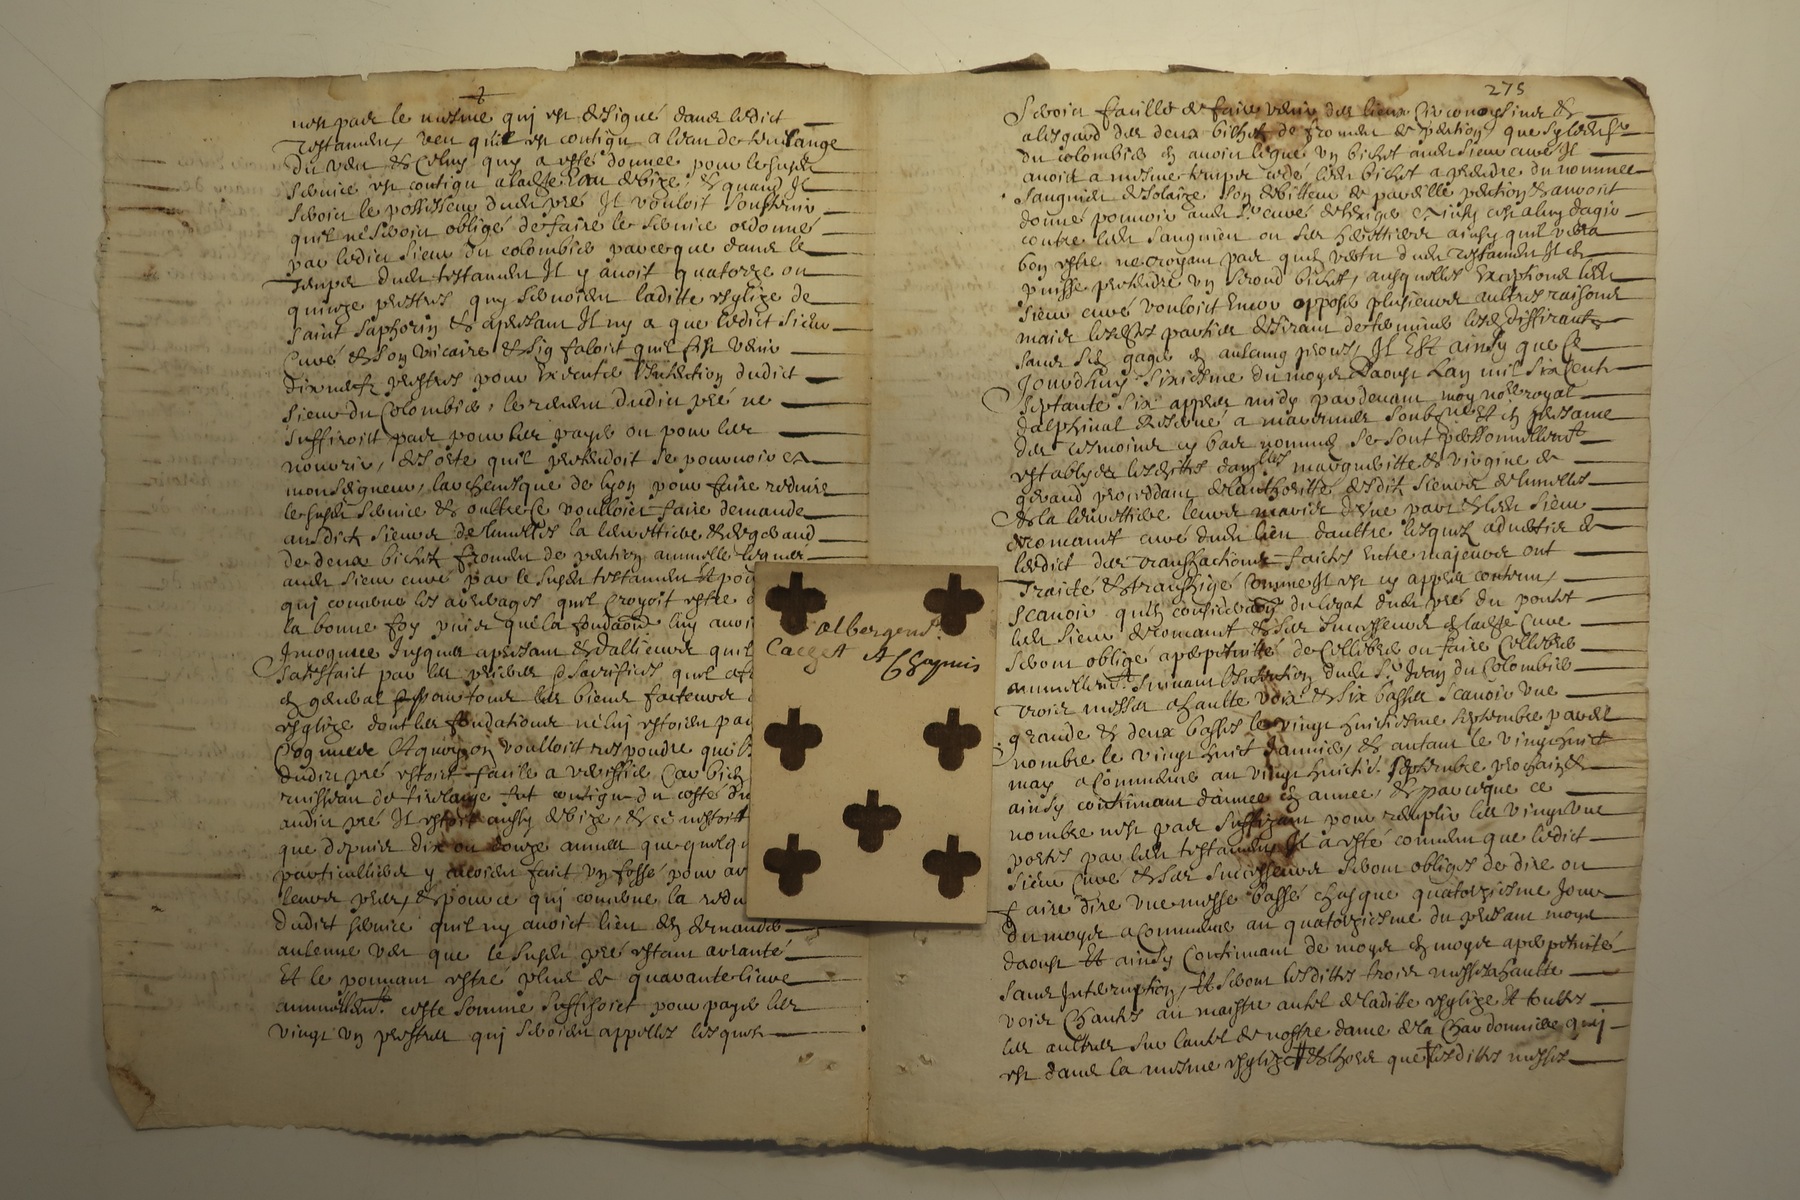 nest pas le mesme quj est designé dans ledict
Testament, veu quil est contigu a leau de
du vent & Celuy quy a esté donnee pour le susdit
service est contigu a ladte Eau de bize, & quand Il
seroit le possesseur dudit pré Il vouloit soustenir
quil ne seroit obligé de faire le service ordonné
par ledict sieur du colombier parceque dans le
Temps dudit testament Il y avoit quatorze ou
quinze prestres quy servoient laditte esglize de
saint saphorin & apresant Il ny a que ledict sieur
Curé & son vicaire & sig faloit quil fist venir
dixneuf prestres pour Executer lintention dudict
sieur du Colombier, le revenu dudict pré ne
suffiroict pas pour les payer ou pour les
nourir, desorte quil pretendoit se pourvoir a
monseigneur larchevesque de lyon pour faire reduire
le susdit service & oultre ce voulloict faire demande
ausdicts sieurs
de deux bichets froment de pention annuelle legués
audit sieur curé par le susdit testament Et pour
quj concerne les arrerages quil croyoit estre
la bonne foy puis que la fondaon luy avoit
Incognue Jusques apresant & dallieurs quil
satisfait par les prieres & sacrifices quil
en general pour tous les biens facteurs
esglize dont les fondations ne luj estoient pas
Cognues Et a quoy on voulloict respondre que
dudict pré estoit facile a verifier Car bien
ruisseau de fut contigu du costé du
audict pré Il estoit aussy de bize, &
que depuis dix ou douze annees que quelques
particulliers y avoient faict un fossé pour
leurs prés, & pour ce quj concerne la
dudict service quil ny avoict lieu den demander
aulcune veu que le susdit pré estant
Et le pouvant estre plus de quarante livres
annuellemt. ceste somme suffisoict pour payer les
vingt un prestres quj seroient appellés lesquels
275
seroict faillu de faire venir des lieux circonvoisins &
alesgard des deux bichets de froment de pention, que sy ledit sr
du colombier en avoit legué un bichet audit sieur curé Il
avoit a mesme temps cedé ledit bichet a prendre du nommé
sanguin de solaize son debiteur de pareille pention & avoit
donné pouvoir audit sr. curé
contre ledit sanguin ou ses herittiers ainsy quil verra
bon estre ne croyant pas quen vertu dudit testament Il en
puisse pretendre un second bichet, ausquelles Exceptions ledit
sieur curé vouloict Encor opposer plusieurs aultres raisons
mais lesdites parties desirant de terminer lesd. differants
sans en aulcung proces, Il Est ainsy que Ce
Jourdhuy sixiesme du moys daoust Lan mil six Cent
septante six appres midy pardevant moy nore royal
dalphinal reservé a soubzné Et en presance
des tesmoings cy bas nommés se sont personnellemt
establyes lesdittes damlles margueritte & virgine de
procedant de lauthoritté desdits sieurs
& la leurs maris dune part & ledit sieur
curé dudit lieu daultre lesquels advertis de
ledict des transactions faictes Entre majeurs ont
Traicté & transigé comme Il est cy appres contenu,
scavoir quen consideraon du legat dudit pré du
ledit sieur & ses successeurs en ladte Cure
seront obligé a perpetuité de cellebrer ou faire Cellebrer
annuellemt. suivant lintention dudit sr. Jean du Colombier
trois messes a haulte voix & six basses scavoir une
grande & deux basses le vingt huictiesme septembre pareil
nombre le vingt huict Janvier, & autant le vingt huict
may a commencer au vingt huictie. septembre prochain &
ainsy continuant dannee en annee, & parceque ce
nombre nest pas suffizant pour remplir les vingt une
portés par ledit testament Il a esté convenu que ledict
sieur Curé & ses successeurs seront obliges de dire ou
faire dire une messe basse chasque quatorziesme Jour
du moys a commencer au quatorziesme du presant moys
daoust Et ainsy Continuant de moys en moys a perpetuité
sans Interruption, Et seront lesdittes trois messes a haulte
voix Chantées au maistre autel de laditte esglize Et touttes
les aultres sur lautel de nostre dame de la Chardonniere quj
est dans la mesme esglize & que lesdittes messes
albergent.
Et Chapuis